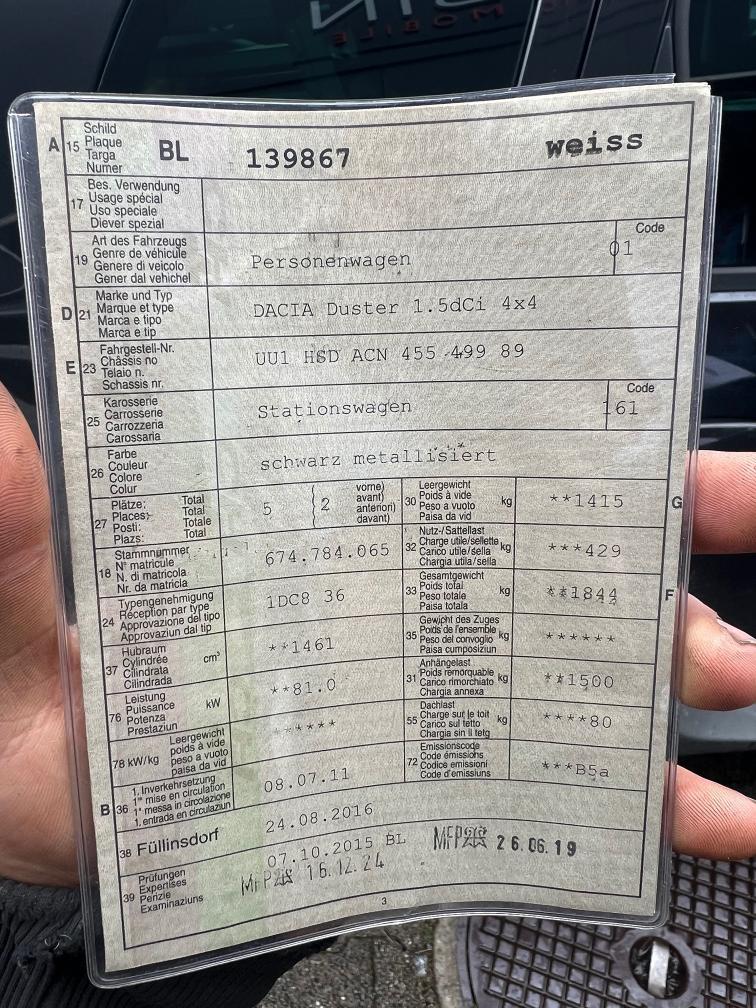 MOBILE
A 15 Schild
Plaque
Targa
Numer
BL 139867 weiss
17 Bes. Verwendung
Usage spécial
Uso speciale
Diever spezial
19 Art des Fahrzeugs
Genre de véhicule
Genere di veicolo
Gener dal vehichel
Personenwagen
Code
01
D 21 Marke und Typ
Marque et type
Marca e tipo
Marca e tip
DACIA Duster 1.5dCi 4x4
E 23 Fahrgestell-Nr.
Châssis no
Telaio n.
Schassis nr.
UU1 HSD ACN 455 499 89
25 Karosserie
Carrosserie
Carrozzeria
Carossaria
Stationswagen
Code
161
26 Farbe
Couleur
Colore
Colur
schwarz metallisiert
27 Plätze: Total
Places: Total
Posti: Totale
Plazs: Total
5 2 vorne)
avant)
anteriori)
davant)
30 Leergewicht
Poids à vide
Peso a vuoto
Paisa da vid
kg **1415 G
18 Stammnummer
N° matricule
N. di matricola
Nr. da matricla
674.784.065
32 Nutz-/Sattellast
Charge utile/sellette
Carico utile/sella
Chargia utila/sella
kg ***429
24 Typengenehmigung
Réception par type
Approvazione del tipo
Approvaziun dal tip
1DC8 36
33 Gesamtgewicht
Poids total
Peso totale
Paisa totala
kg **1844 F
37 Hubraum
Cylindrée
Cilindrata
Cilindrada
cm³ **1461
35 Gewicht des Zuges
Poids de l'ensemble
Peso del convoglio
Paisa cumposiziun
kg ******
76 Leistung
Puissance
Potenza
Prestaziun
kW **81.0
31 Anhängelast
Poids remorquable
Carico rimorchiato
Chargia annexa
kg **1500
78 kW/kg Leergewicht
poids à vide
peso a vuoto
paisa da vid
******
55 Dachlast
Charge sur le toit
Carico sul tetto
Chargia sin il tetg
kg ****80
B 36 1. Inverkehrsetzung
1re mise en circulation
1a messa in circolazione
1. entrada en circulaziun
08.07.11
72 Emissionscode
Code émissions
Codice emissioni
Code d'emissiuns
***B5a
38 Füllinsdorf 24.08.2016
39 Prüfungen
Expertises
Perizie
Examinaziuns
07.10.2015 BL MFP 26.06.19
MFP 16.12.24
3